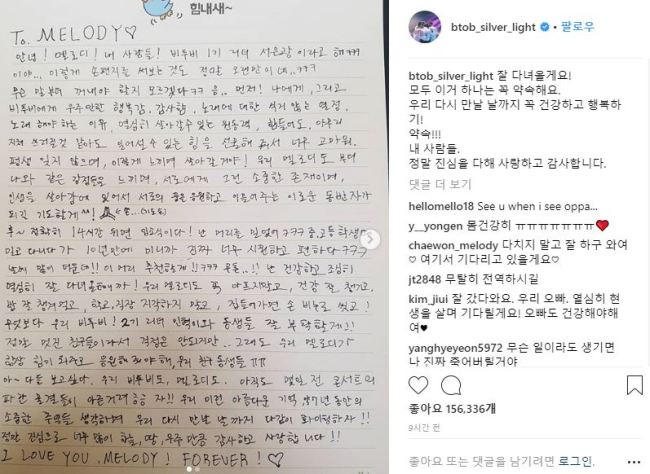 힘내새~
To. MELODY♡
안녕! 멜로디! 내 사람들! 비투비 1기 리더 서은광이라고 해ㅋㅋㅋ
이야... 이렇게 손편지를 써보는 것도 정말 오랜만이네..ㅋㅋㅋ
무슨 말부터 꺼내야 할지 모르겠다ㅋㅋ 음.. 먼저! 나에게, 그리고
비투비에게 우주만한 행복감, 감사함, 노래에 대한 식지 않는 열정,
노래해야하는 이유, 열심히 살아갈 수 있는 원동력, 힘들어도, 아무리
지쳐 쓰러질것 같아도 일어설 수 있는 힘을 선물해줘서 너무 고마워.
평생 잊지 않으며, 이렇게 느끼며 살아갈게야! 우리 멜로디도 모두
나와 같은 감정들을 느끼며, 서로에게 그런 소중한 존재이며,
인생을 살아감에 있어서 서로의 꿈을 응원하고 이끌어주는 이로운 동반자가
되길 기도할게^^!
후~ 정확히 14시간 뒤면 입소식이다! 난 머리를 밀었어ㅋㅋㅋ 중고등학생때
밀고 다니다가 10년만에 미니까 진짜 너무 시원하고 편하다ㅋㅋㅋ
날씨 많이 더운데!! 이 머리 추천하께!!ㅋㅋㅋ 무튼..!! 난 건강하고 조심히
열심히 잘 다녀올테니까! 우리 멜로디도 꼭 아프지말고, 건강 잘 챙기고,
밥 잘 챙겨먹고, 학교, 직장 지각하지 말고, 집들어가면 손 비누로 씻고!
무엇보다 우리 비투비! 2기 리더 민혁이와 동생들 잘 부탁할게!!
정말 멋진 친구들이라서 걱정은 안되지만.. 그래도 우리 멜로디가
항상 힘이 되주고 응원해줘야해, 우리 친구 동생들 ㅠㅠ
아~ 다들 보고싶다. 우리 비투비도, 멜로디도. 아직도 몇일 전 콘서트의
우리 다시 만날 날까지 다같이 화이팅하자!!
정말 진심으로 너무 많이 하늘, 땅, 우주만큼 감사하고 사랑합니다!!
I LOVE YOU. MELODY! FOREVER! ♡
btob_silver_light • 팔로우
btob_silver_light 잘 다녀올게요!
모두 이거 하나는 꼭 약속해요.
우리 다시 만날 날까지 꼭 건강하고 행복하
기!
약속!!!
내 사람들.
정말 진심을 다해 사랑하고 감사합니다.
댓글 더 보기
hellomello18 See u when i see oppa...
y__yongen 몸건강히 ㅠㅠㅠㅠㅠㅠㅠ❤
chaewon_melody 다치지 말고 잘 하구 와여
♡ 여기서 기다리고 있을게요♡
jt2848 무탈히 전역하시길
kim_jiui 잘 갔다와요. 우리 오빠. 열심히 현
생을 살며 기다릴게요! 오빠도 건강해야해
여♥
yanghyeyeon5972 무슨 일이라도 생기면
나 진짜 죽어버릴거야
좋아요 156,336개
9시간 전
좋아요 또는 댓글을 남기려면 로그인.